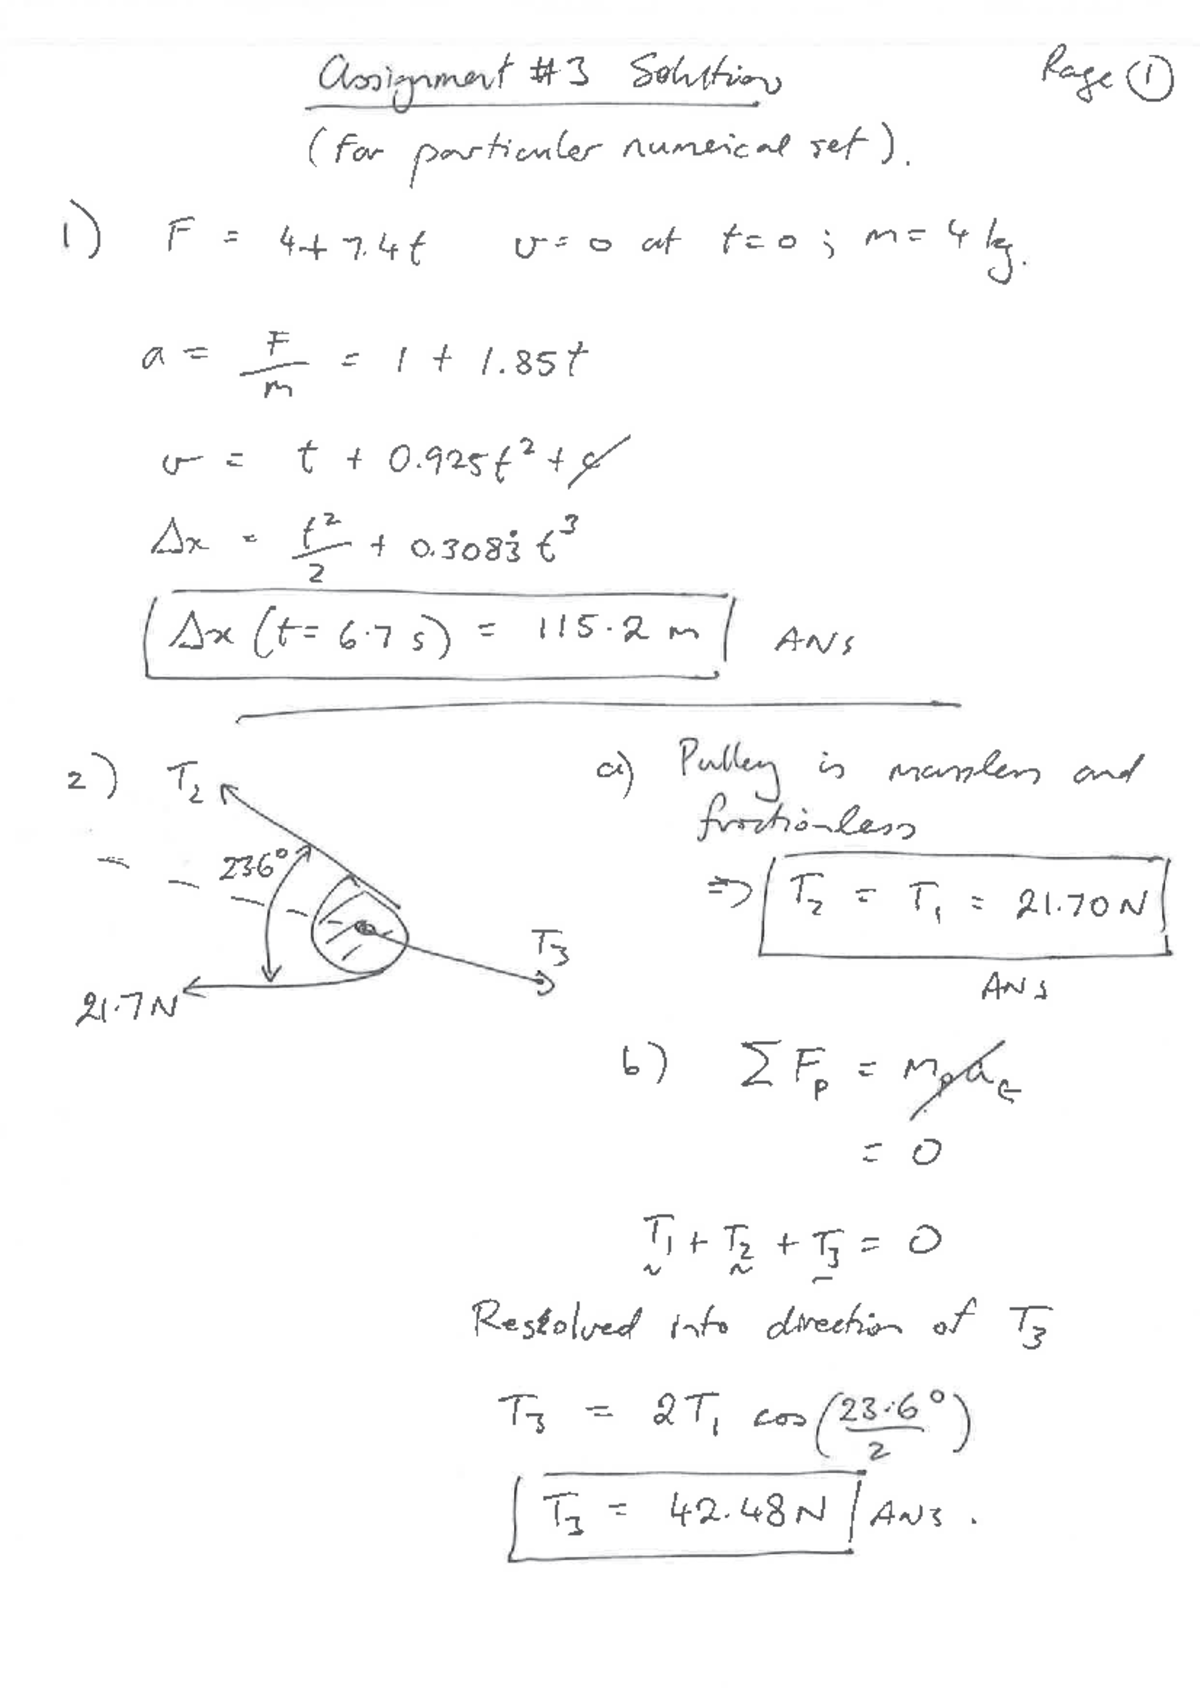 Assignment #3 Solution
Page ①
(For particular numerical set).
1) F = 4 + 7.4t v = 0 at t = 0 ; m = 4 kg.
a = F/m = 1 + 1.85t
v = t + 0.925t² + c
Δx = t²/2 + 0.3083̇ t³
Δx (t = 6.7 s) = 115.2 m ANS
2) T₂
23.6°
T₃
21.7N
a) Pulley is massless and
frictionless
⇒ T₂ = T₁ = 21.70 N
ANS
b) Σ Fₚ = mₚa
= 0
T₁ + T₂ + T₃ = 0
Resolved into direction of T₃
T₃ = 2T₁ cos (23.6°/2)
T₃ = 42.48 N ANS.